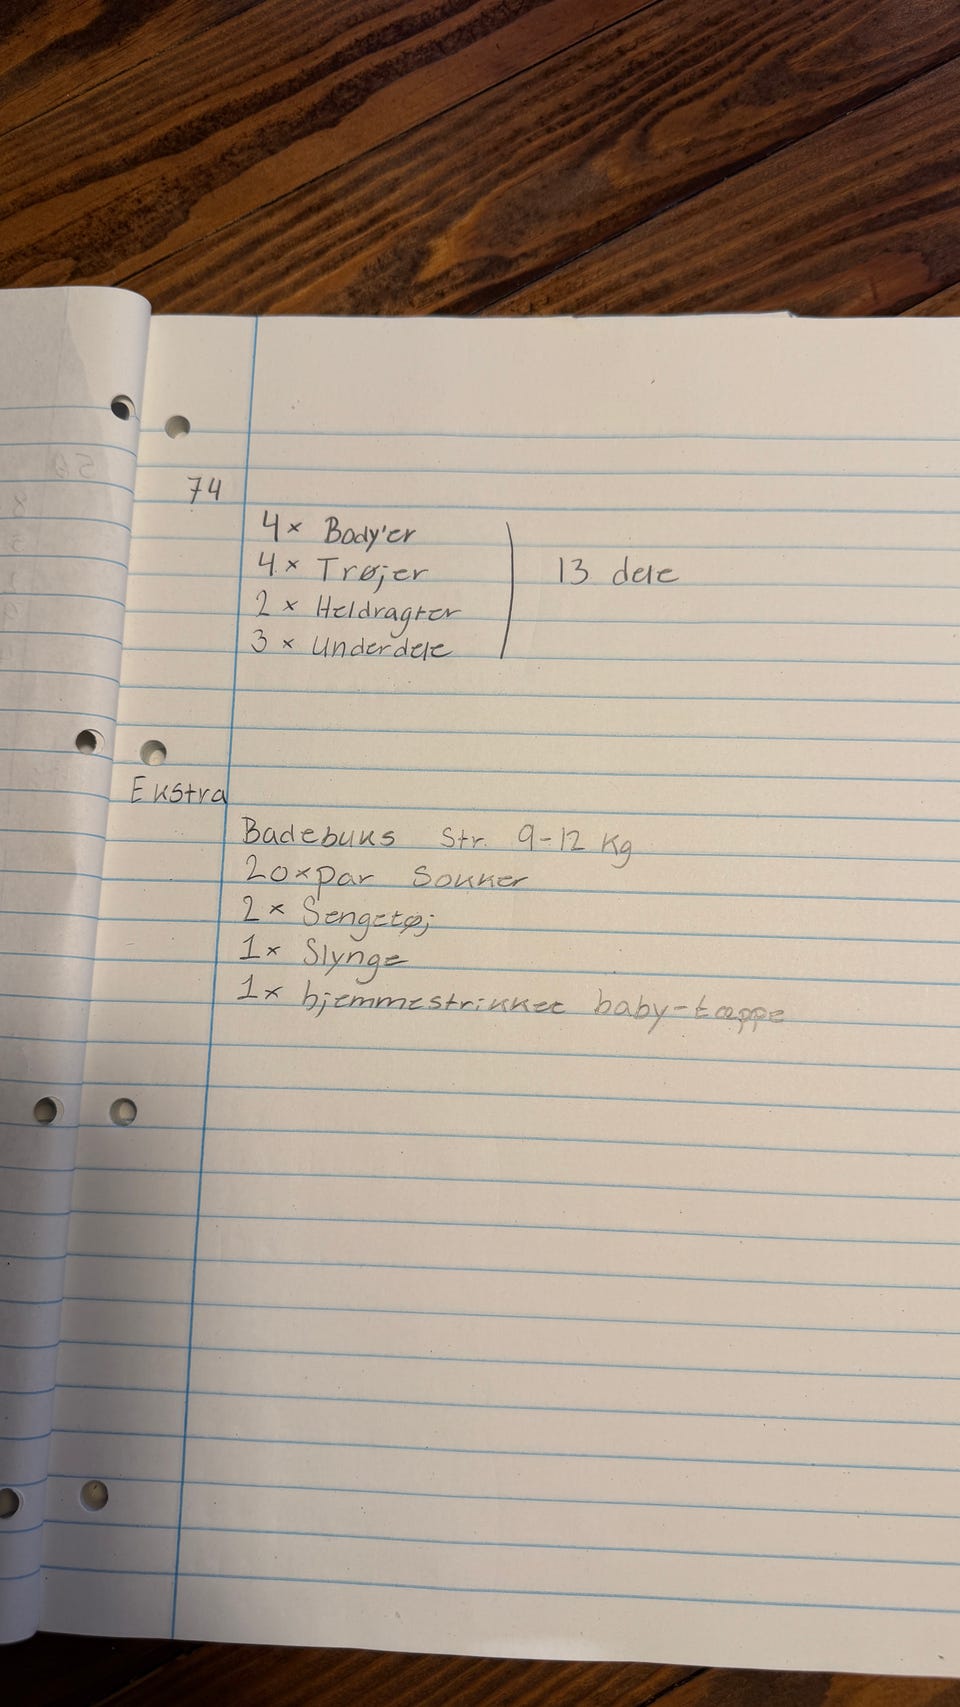 74
4x Body'er
4x Trøjer
2x Heldragter
3x Underdele
13 dele
Ekstra
Badebuks Str. 9-12 Kg
20xpar Sokker
2x Sengetøj
1x Slynge
1x hjemmestrikket baby-tæppe